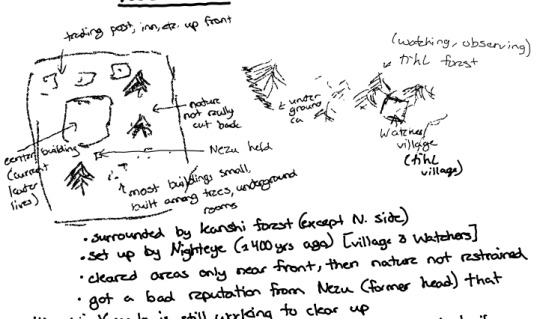 trading post, inn, etc. up front
(watching, observing)
tihl forest
nature
not really
cut back
under
ground
Watcher
village
(tihl
village)
center building
(current
leader
lives)
Nezu held
most buildings small,
built among trees, underground
rooms
• surrounded by kanshi forest (except N. side)
• set up by Nighteye (≥400 yrs ago) [village & Watchers]
• cleared areas only near front, then nature not restrained
• got a bad reputation from Nezu (former head) that
is still working to clear up